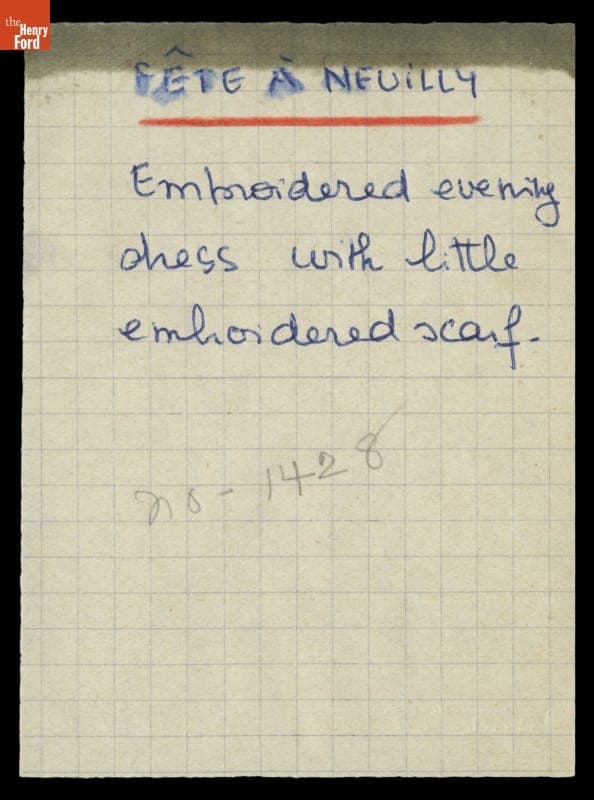 the
Henry
Ford
FÊTE À NEUiLLY
Embroidered evening
dress with little
embroidered scarf.
no - 1428